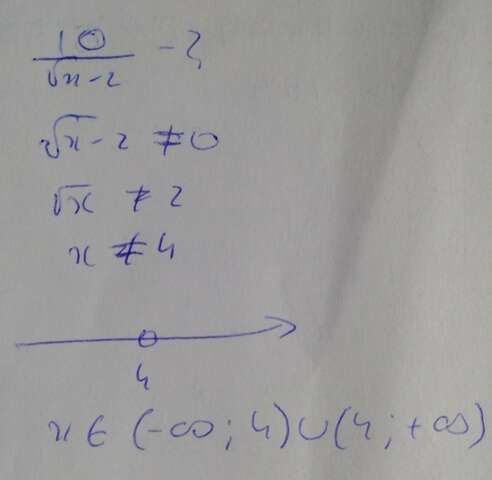 10
√x-2 - ?
√x - 2 ≠ 0
√x ≠ 2
x ≠ 4
4
x ∈ (-∞; 4) ∪ (4; +∞)